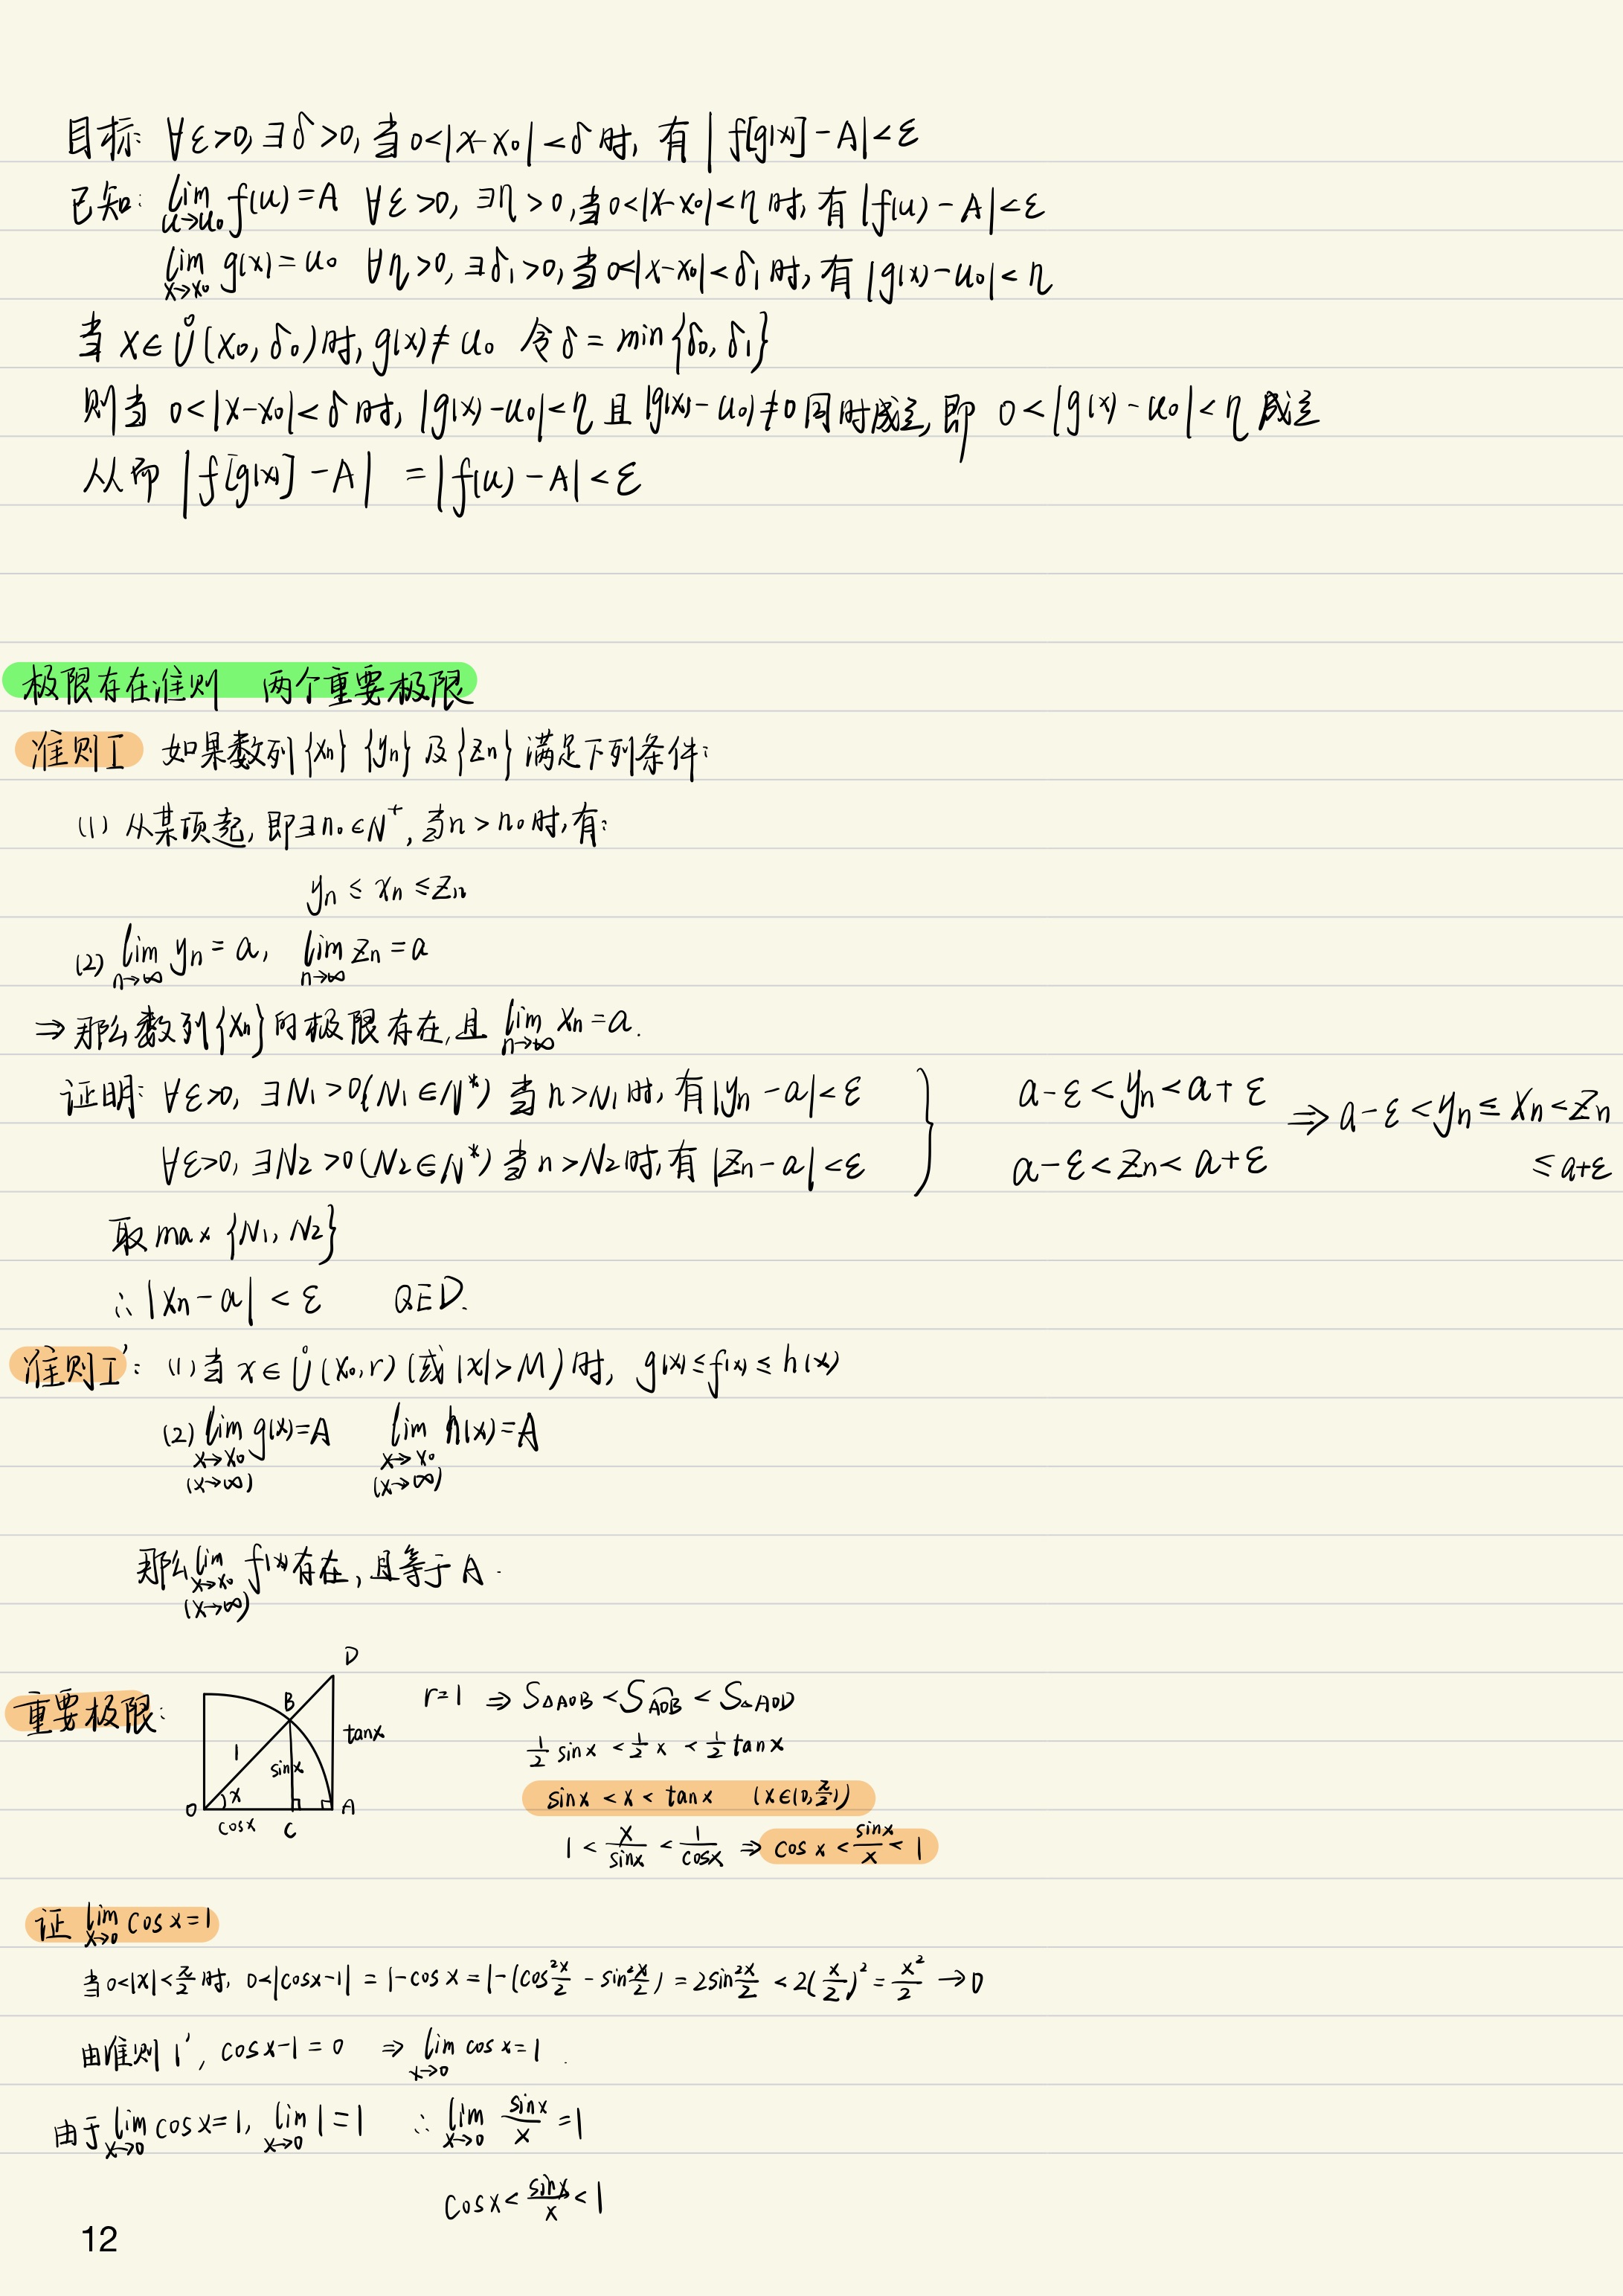 目标: ∀ε>0, ∃δ>0, 当0<|x-x₀|<δ时, 有|f[g(x)]-A|<ε
已知: lim_{u→u₀} f(u)=A ∀ε>0, ∃η>0, 当0<|x-x₀|<η时, 有|f(u)-A|<ε
lim_{x→x₀} g(x)=u₀ ∀η>0, ∃δ₁>0, 当0<|x-x₀|<δ₁时, 有|g(x)-u₀|<η
当x∈Ů(x₀,δ₀)时, g(x)≠u₀ 令δ=min{δ₀,δ₁}
则当0<|x-x₀|<δ时, |g(x)-u₀|<η且|g(x)-u₀|≠0同时成立, 即 0<|g(x)-u₀|<η成立
从而|f[g(x)]-A| =|f(u)-A|<ε
极限存在准则 两个重要极限
准则I 如果数列{xₙ} {yₙ}及{zₙ}满足下列条件:
(1) 从某项起, 即∃n₀∈N⁺, 当n>n₀时, 有:
yₙ≤xₙ≤zₙ
(2) lim_{n→∞} yₙ=a, lim_{n→∞} zₙ=a
⇒那么数列{xₙ}的极限存在, 且 lim_{n→∞} xₙ=a.
证明: ∀ε>0, ∃N₁>0(N₁∈N*) 当n>N₁时, 有|yₙ-a|<ε } a-ε<yₙ<a+ε ⇒ a-ε<yₙ≤xₙ<zₙ
∀ε>0, ∃N₂>0(N₂∈N*) 当n>N₂时, 有|zₙ-a|<ε a-ε<zₙ<a+ε ≤a+ε
取max{N₁,N₂}
∴|xₙ-a|<ε QED.
准则I′: (1)当x∈Ů(x₀,r)(或|x|>M)时, g(x)≤f(x)≤h(x)
(2) lim_{x→x₀ (x→∞)} g(x)=A lim_{x→x₀ (x→∞)} h(x)=A
那么 lim_{x→x₀ (x→∞)} f(x)存在, 且等于A.
重要极限:
D
B
1
sinx
tanx
x
O
cosx
C
A
r=1 ⇒ S△AOB<S⌒AOB<S△AOD
½sinx<½x<½tanx
sinx<x<tanx (x∈(0,π/2))
1<x/sinx<1/cosx ⇒ cosx<sinx/x<1
证 lim_{x→0} cosx=1
当0<|x|<π/2时, 0<|cosx-1|=1-cosx=1-(cos²x/2-sin²x/2)=2sin²x/2<2(x/2)²=x²/2→0
由准则1′, cosx-1=0 ⇒ lim_{x→0} cosx=1.
由于 lim_{x→0} cosx=1, lim_{x→0} 1=1 ∴ lim_{x→0} sinx/x=1
cosx<sinx/x<1
12